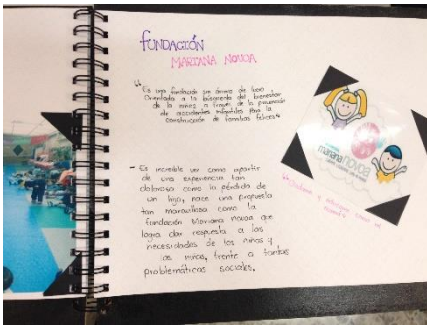 FUNDACIÓN
MARIANA NOVOA
"Es una fundación sin ánimo de lucro
Orientada a la búsqueda del bienestar
de la niñez, a través de la prevención
de accidentes infantiles Para la
construcción de familias felices"
- Es increíble ver como apartir
de una experiencia tan
dolorosa como la pérdida de
un hijo, nace una propuesta
tan maravillosa como la
fundación Mariana novoa que
logra dar respuesta a las
necesidades de los niños y
las niñas, frente a tantas
problemáticas sociales.
mariana novoa